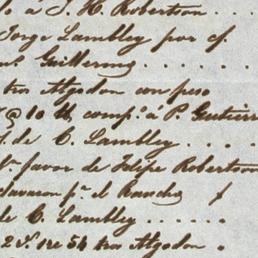 lo á J. H. Robertson
Jorge Lambley por cf.
Guillermo
tros Algodon con peso
@ 10 lb comp.s á P. Gutierr
f. de C. Lambley
favor de Felipe Robertson
p.a el Rancho
de C. Lambley
54 tros Algodon